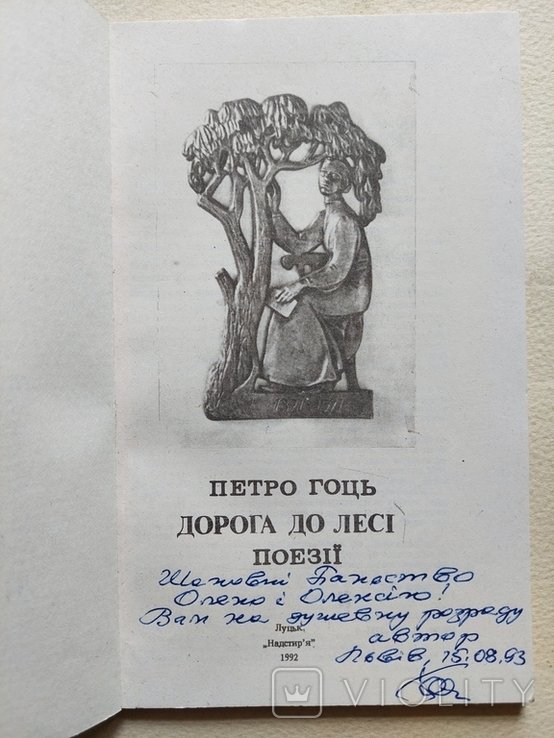 ПЕТРО ГОЦЬ
ДОРОГА ДО ЛЕСІ
ПОЕЗІЇ
Шановні Панство
Олено і Олексію!
Вам на душевну розраду
автор
Львів, 15.08.93
Луцьк,
„Надстир'я"
1992
VIOLITY